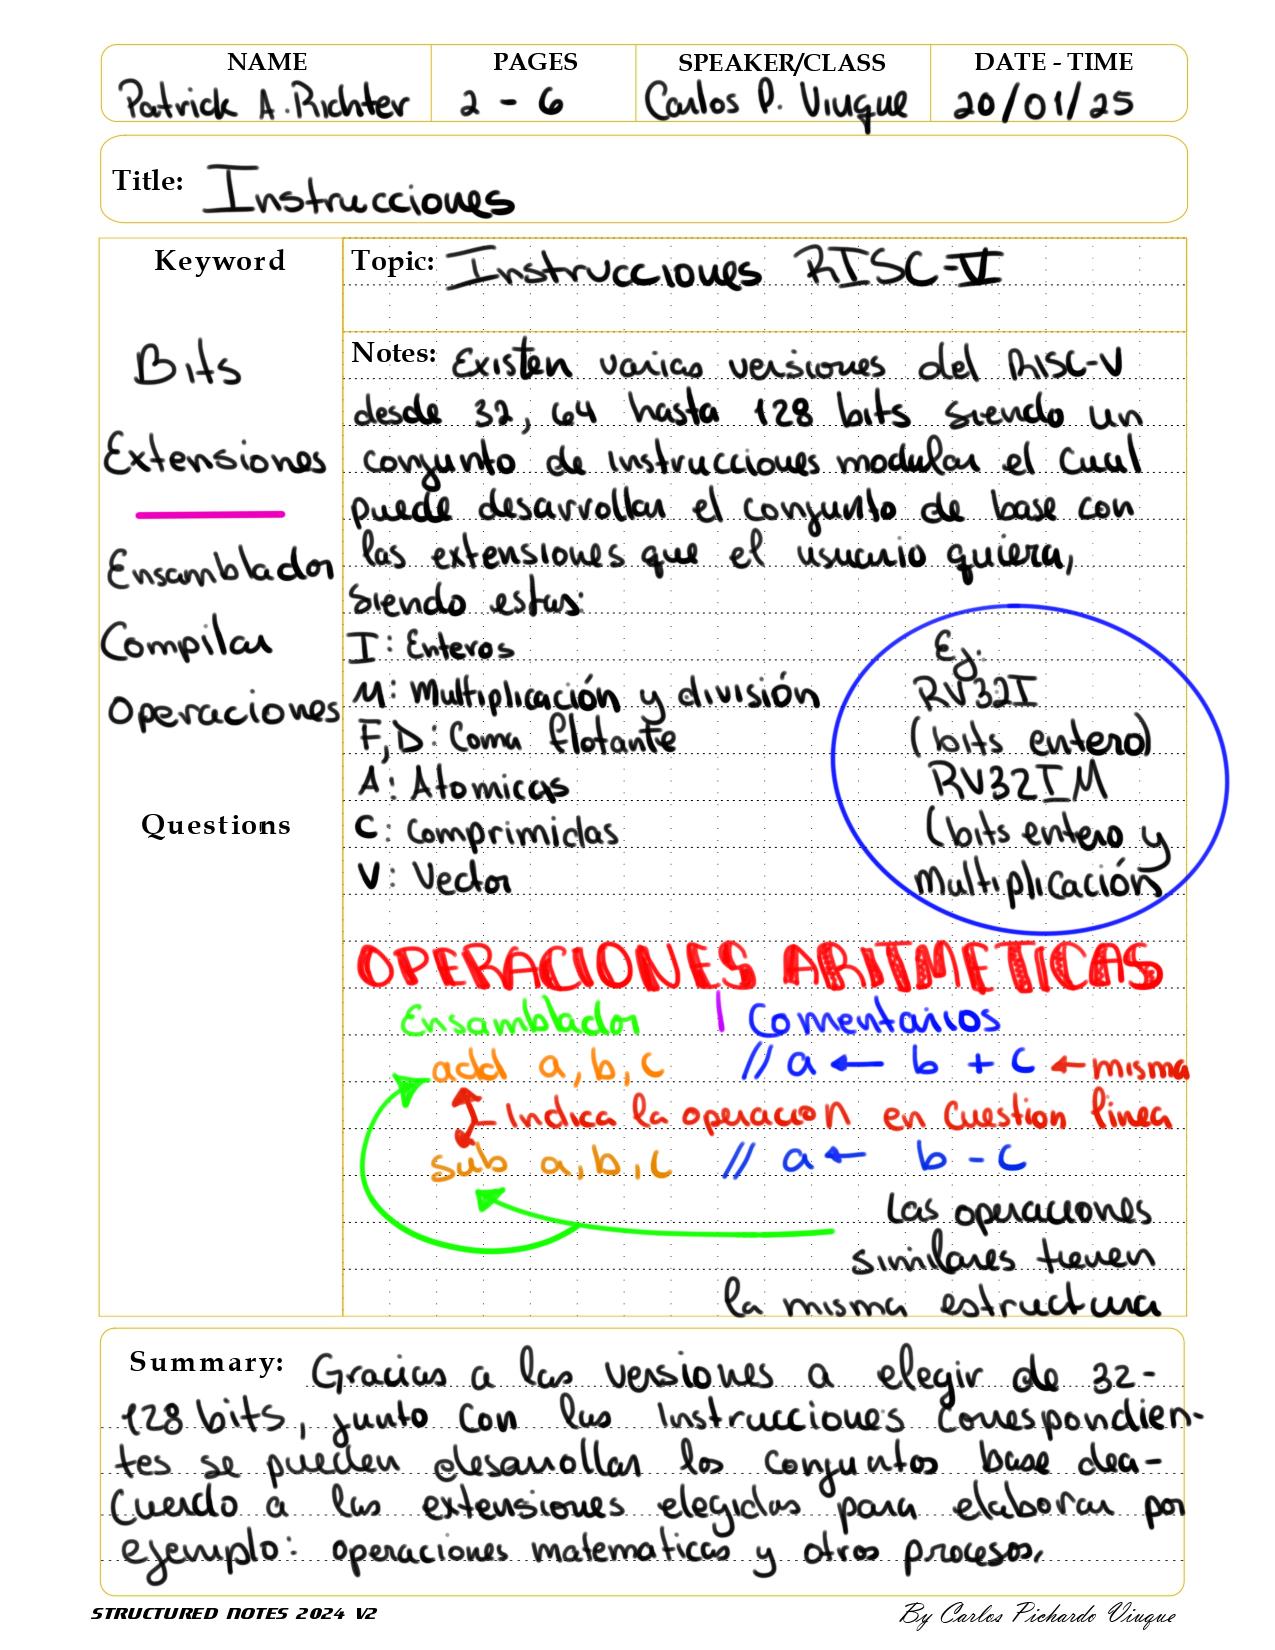 NAME PAGES SPEAKER/CLASS DATE - TIME
Patrick A. Richter 2 - 6 Carlos P. Viuque 20/01/25
Title: Instrucciones
Keyword
Topic: Instrucciones RISC-V
Bits
Extensiones
Ensamblador
Compilar
Operaciones
Questions
Notes: Existen varias versiones del RISC-V
desde 32, 64 hasta 128 bits siendo un
conjunto de instrucciones modular el cual
puede desarrollar el conjunto de base con
las extensiones que el usuario quiera,
siendo estas:
I: Enteros
M: Multiplicación y división
F,D: Coma flotante
A: Atomicas
C: Comprimidas
V: Vector
Ej.
RV32I
(bits entero)
RV32IM
(bits entero y
multiplicación
OPERACIONES ARITMETICAS
Ensamblador | Comentarios
add a,b,c // a ← b + c ← misma
Indica la operacion en cuestion linea
sub a,b,c // a ← b - c
Las operaciones
similares tienen
la misma estructura
Summary: Gracias a las versiones a elegir de 32-
128 bits, junto con las instrucciones correspondien-
tes se pueden desarrollar los conjuntos base dea-
cuerdo a las extensiones elegidas para elaborar por
ejemplo: operaciones matematicas y otros procesos.
STRUCTURED NOTES 2024 V2 By Carlos Pichardo Viuque